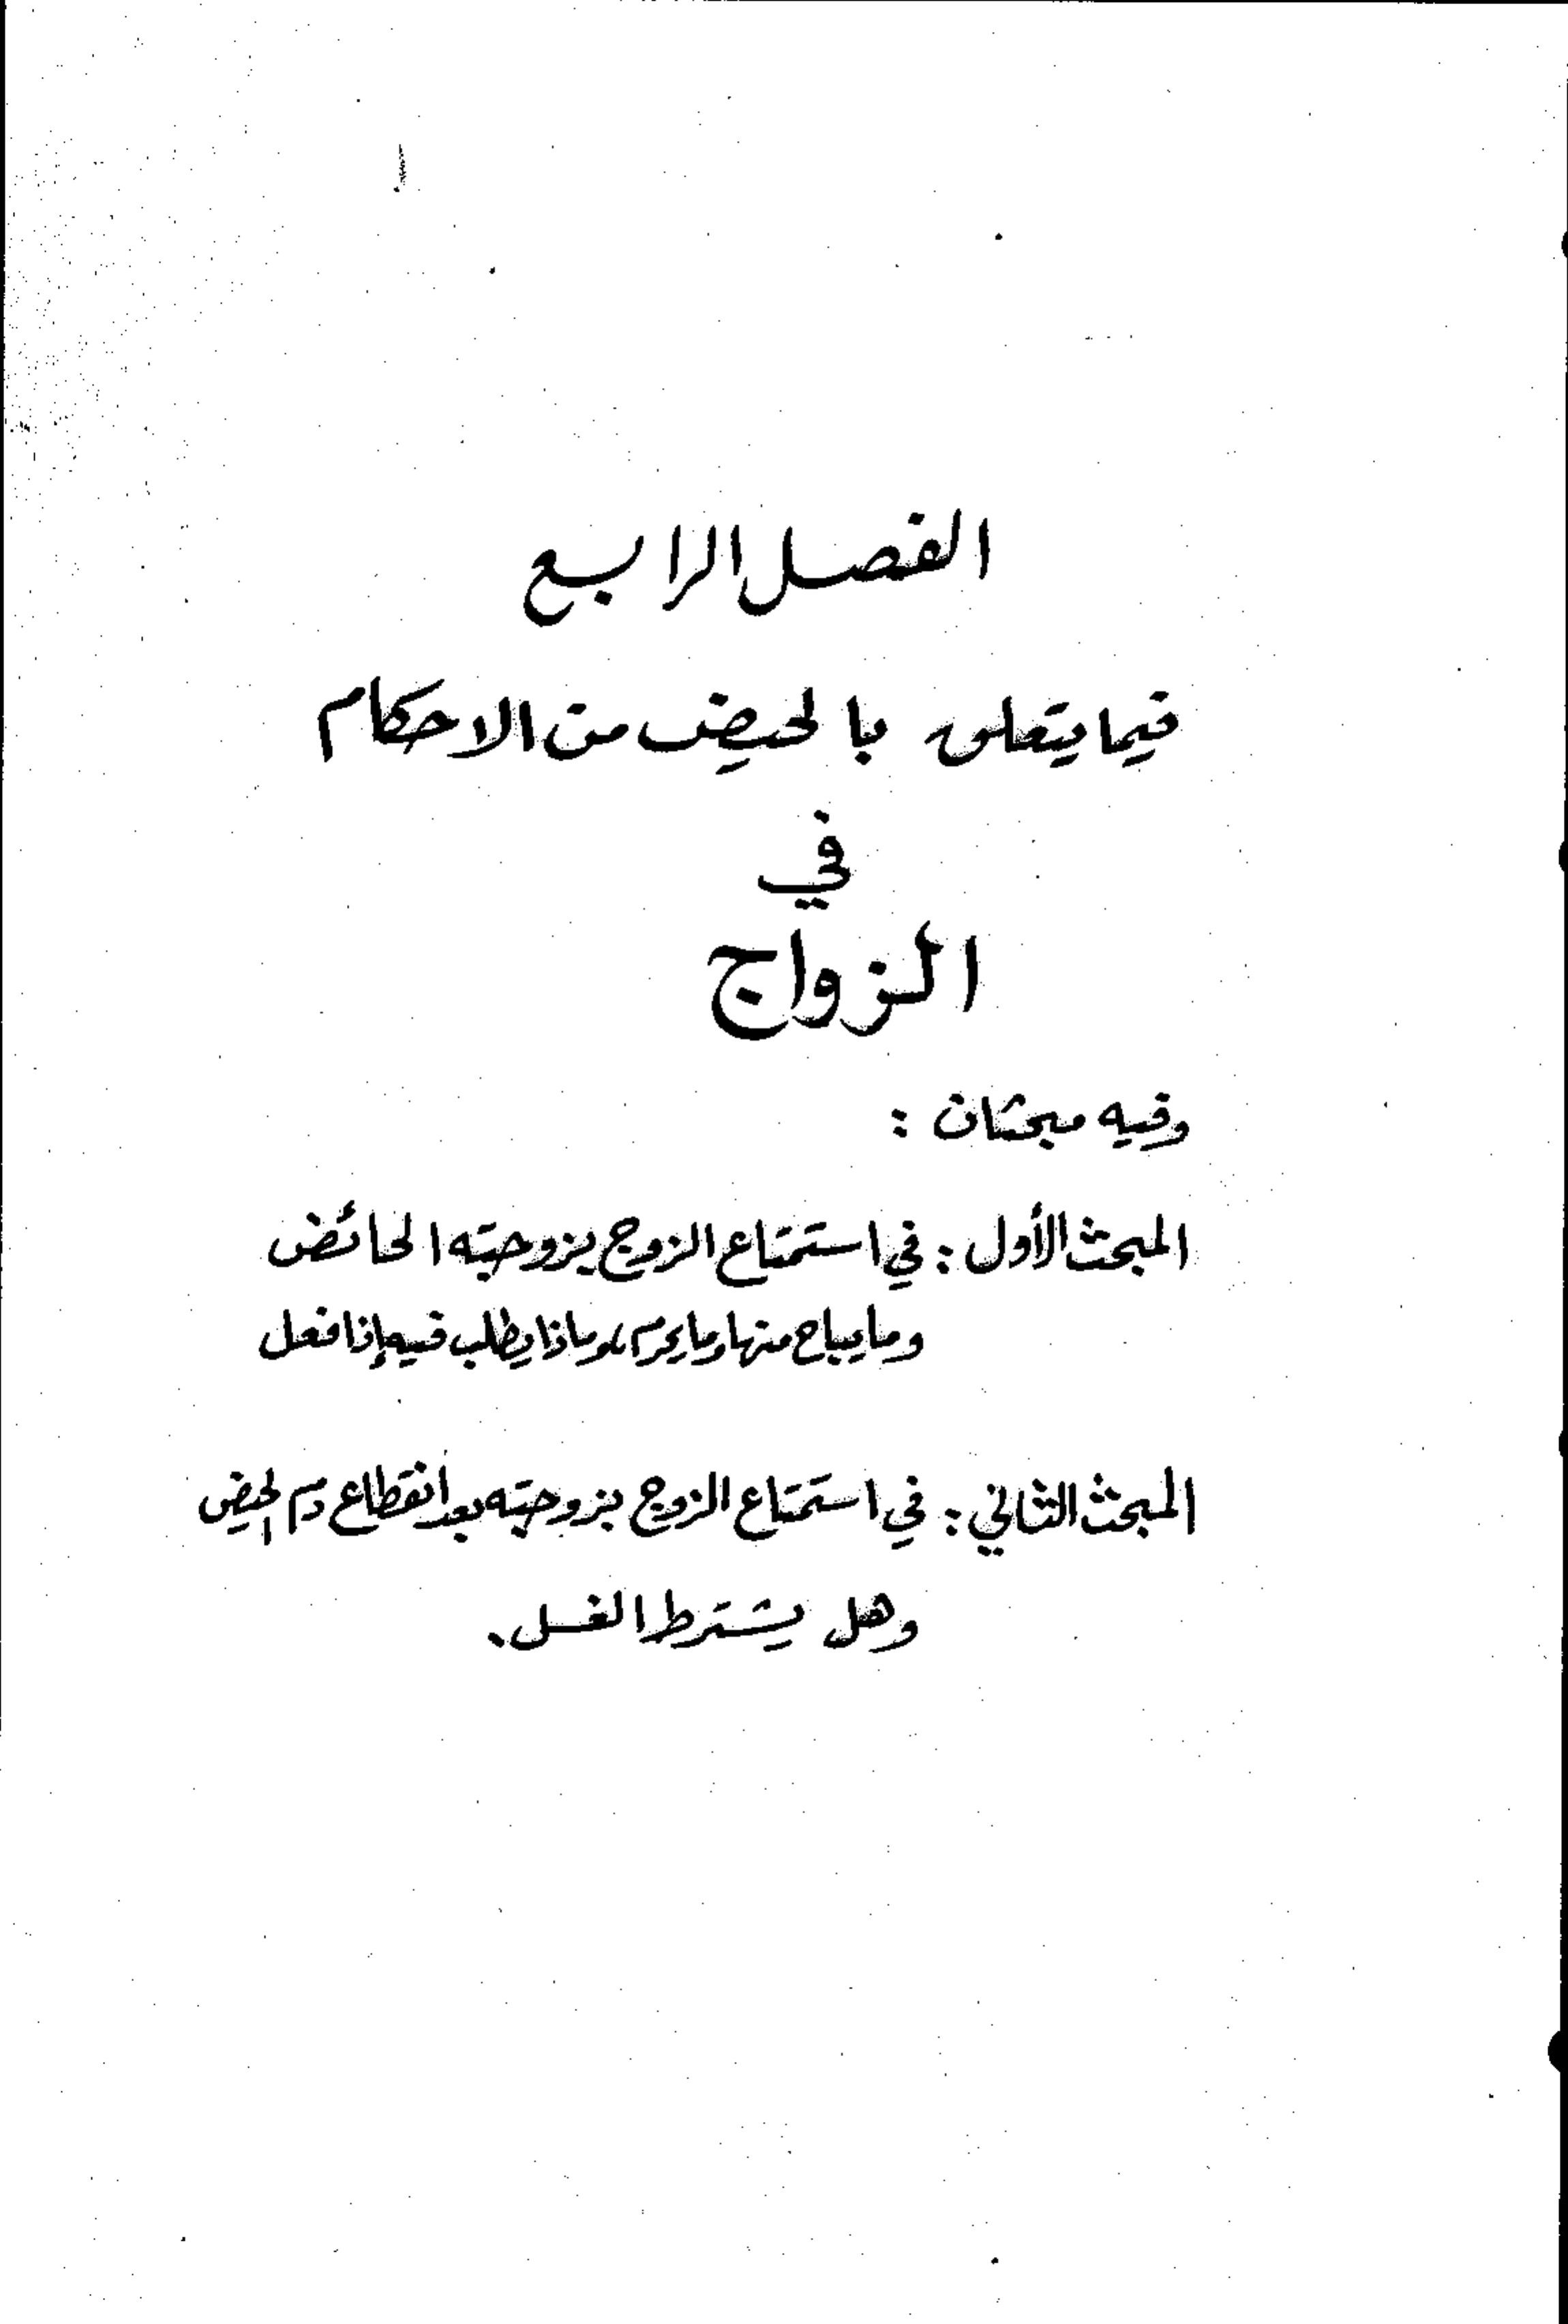 الفصل الرابع
فيما يتعلق بالحيض من الاحكام
في
الزواج
وفيه مبحثان :
المبحث الأول : في استمتاع الزوج بزوجته الحائض
وما يباح منها وما يحرم، وماذا يطلب فيه إذا فعل
المبحث الثاني : في استمتاع الزوج بزوجته بعد انقطاع دم الحيض
وهل يشترط الغسل .